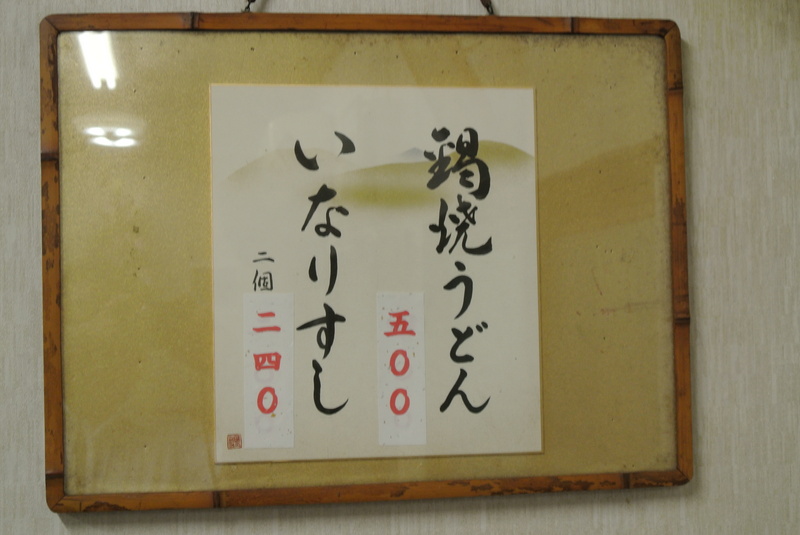 鍋焼うどん
五〇〇
いなりすし
二個 二四〇